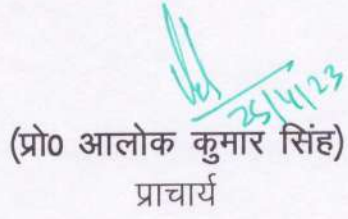 25/4/23
(प्रो0 आलोक कुमार सिंह)
प्राचार्य